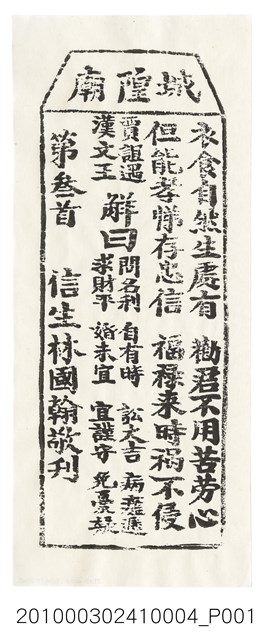 城隍廟
衣食自然生處有 勸君不用苦勞心
但能孝悌存忠信 福祿来時禍不侵
賈誼遇
漢文王
解曰
問名利 自有時 訟大吉 病
求財平 婚未宜 宜謹守 免憂疑
第叁首 信生林國翰敬刊
201000302410004_P001